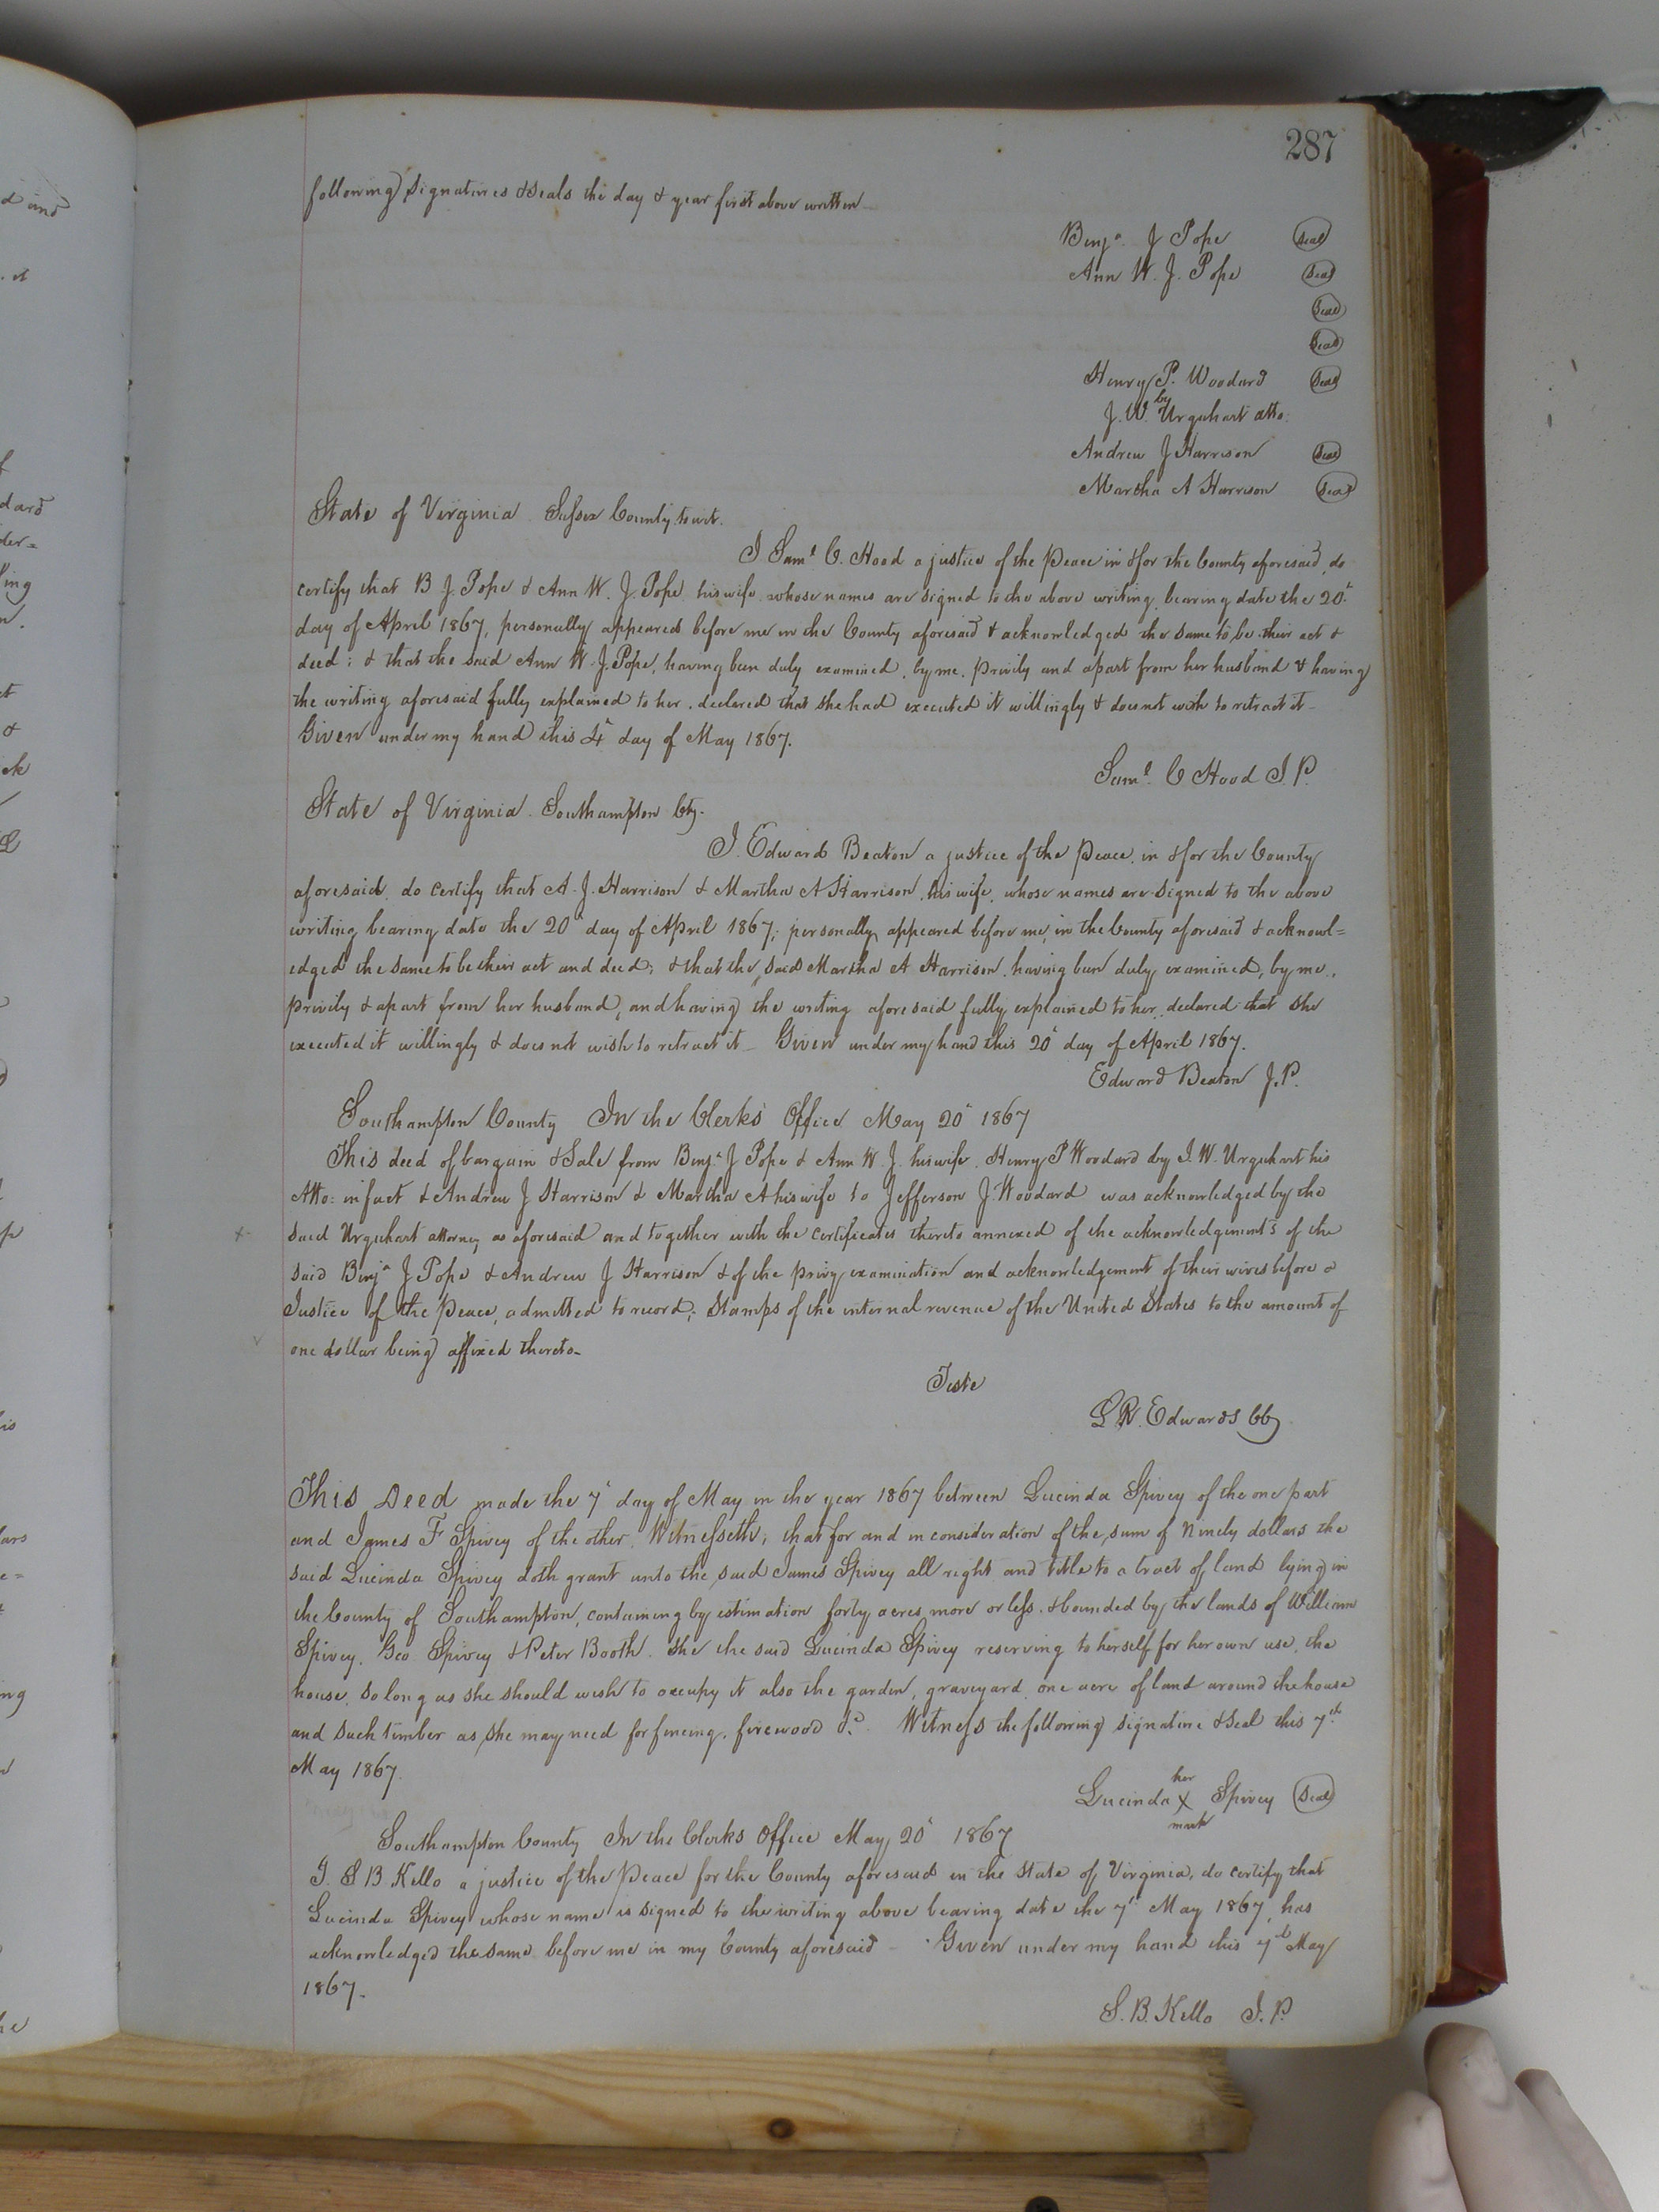 287
following signatures & seals the day & year first above written
Benja. J Pope Seal
Ann W. J. Pope Seal
Seal
Seal
Henry P. Woodard Seal
by
J. W. Urquhart atto.
Andrew J Harrison Seal
Martha A Harrison Seal
State of Virginia Sussex County, to wit.
I Saml C. Hood a justice of the Peace in & for the County aforesaid, do
certify that B J. Pope & Ann W. J. Pope his wife whose names are signed to the above writing bearing date the 20th
day of April 1867, personally appeared before me in the County aforesaid & acknowledged the same to be their act &
deed; & that the said Ann W. J. Pope, having been duly examined, by me, privily and apart from her husband & having
the writing aforesaid fully explained to her, declared that she had executed it willingly & does not wish to retract it
Given under my hand this 4th day of May 1867.
Saml. C Hood J. P.
State of Virginia. Southampton Cty.
I. Edward Beaton a justice of the Peace, in & for the County
aforesaid, do certify that A. J. Harrison & Martha A Harrison, his wife, whose names are signed to the above
writing bearing date the 20th day of April 1867, personally appeared before me, in the County aforesaid & acknowl=
edged the same to be their act and deed; & that the said Martha A Harrison, having been duly examined, by me,
privily & apart from her husband, and having the writing aforesaid fully explained to her, declared that she
executed it willingly & does not wish to retract it - Given under my hand this 20th day of April 1867.
Edward Beaton J. P.
Southampton County In the Clerks Office May 20th 1867
This deed of bargain & Sale from Benja. J Pope & Ann W. J. his wife, Henry P Woodard by J. W. Urquhart his
Atto: in fact & Andrew J Harrison & Martha A his wife to Jefferson J. Woodard was acknowledged by the
said Urquhart attorney as aforesaid and together with the certificates thereto annexed of the acknowledgements of the
said Benja J Pope & Andrew J Harrison & of the privy examination and acknowledgement of their wives before a
Justice of the Peace, admitted to record; Stamps of the internal revenue of the United States to the amount of
one dollar being affixed thereto-
Teste
L R. Edwards CC
This Deed made the 7th day of May in the year 1867 between Lucinda Spivey of the one part
and James F Spivey of the other, Witnesseth; that for and in consideration of the sum of Ninety dollars the
said Lucinda Spivey doth grant unto the said James Spivey all right and title to a tract of land lying in
the County of Southampton, containing by estimation forty acres more or less, & bounded by the lands of William
Spivey, Geo Spivey & Peter Booth. She the said Lucinda Spivey reserving to herself for her own use, the
house, so long as she should wish to occupy it also the garden, graveyard, one acre of land around the house
and such timber as she may need for fencing, firewood &c. Witness the following signature & Seal this 7th
May 1867.
her
Lucinda X Spivey Seal
mark
Southampton County In the Clerks Office May 20th 1867
I. S B Kello a justice of the Peace for the County aforesaid in the State of Virginia, do certify that
Lucinda Spivey whose name is signed to the writing above bearing date the 7th May 1867, has
acknowledged the same before me in my County aforesaid - Given under my hand this 7th May
1867.
S. B. Kello J. P.